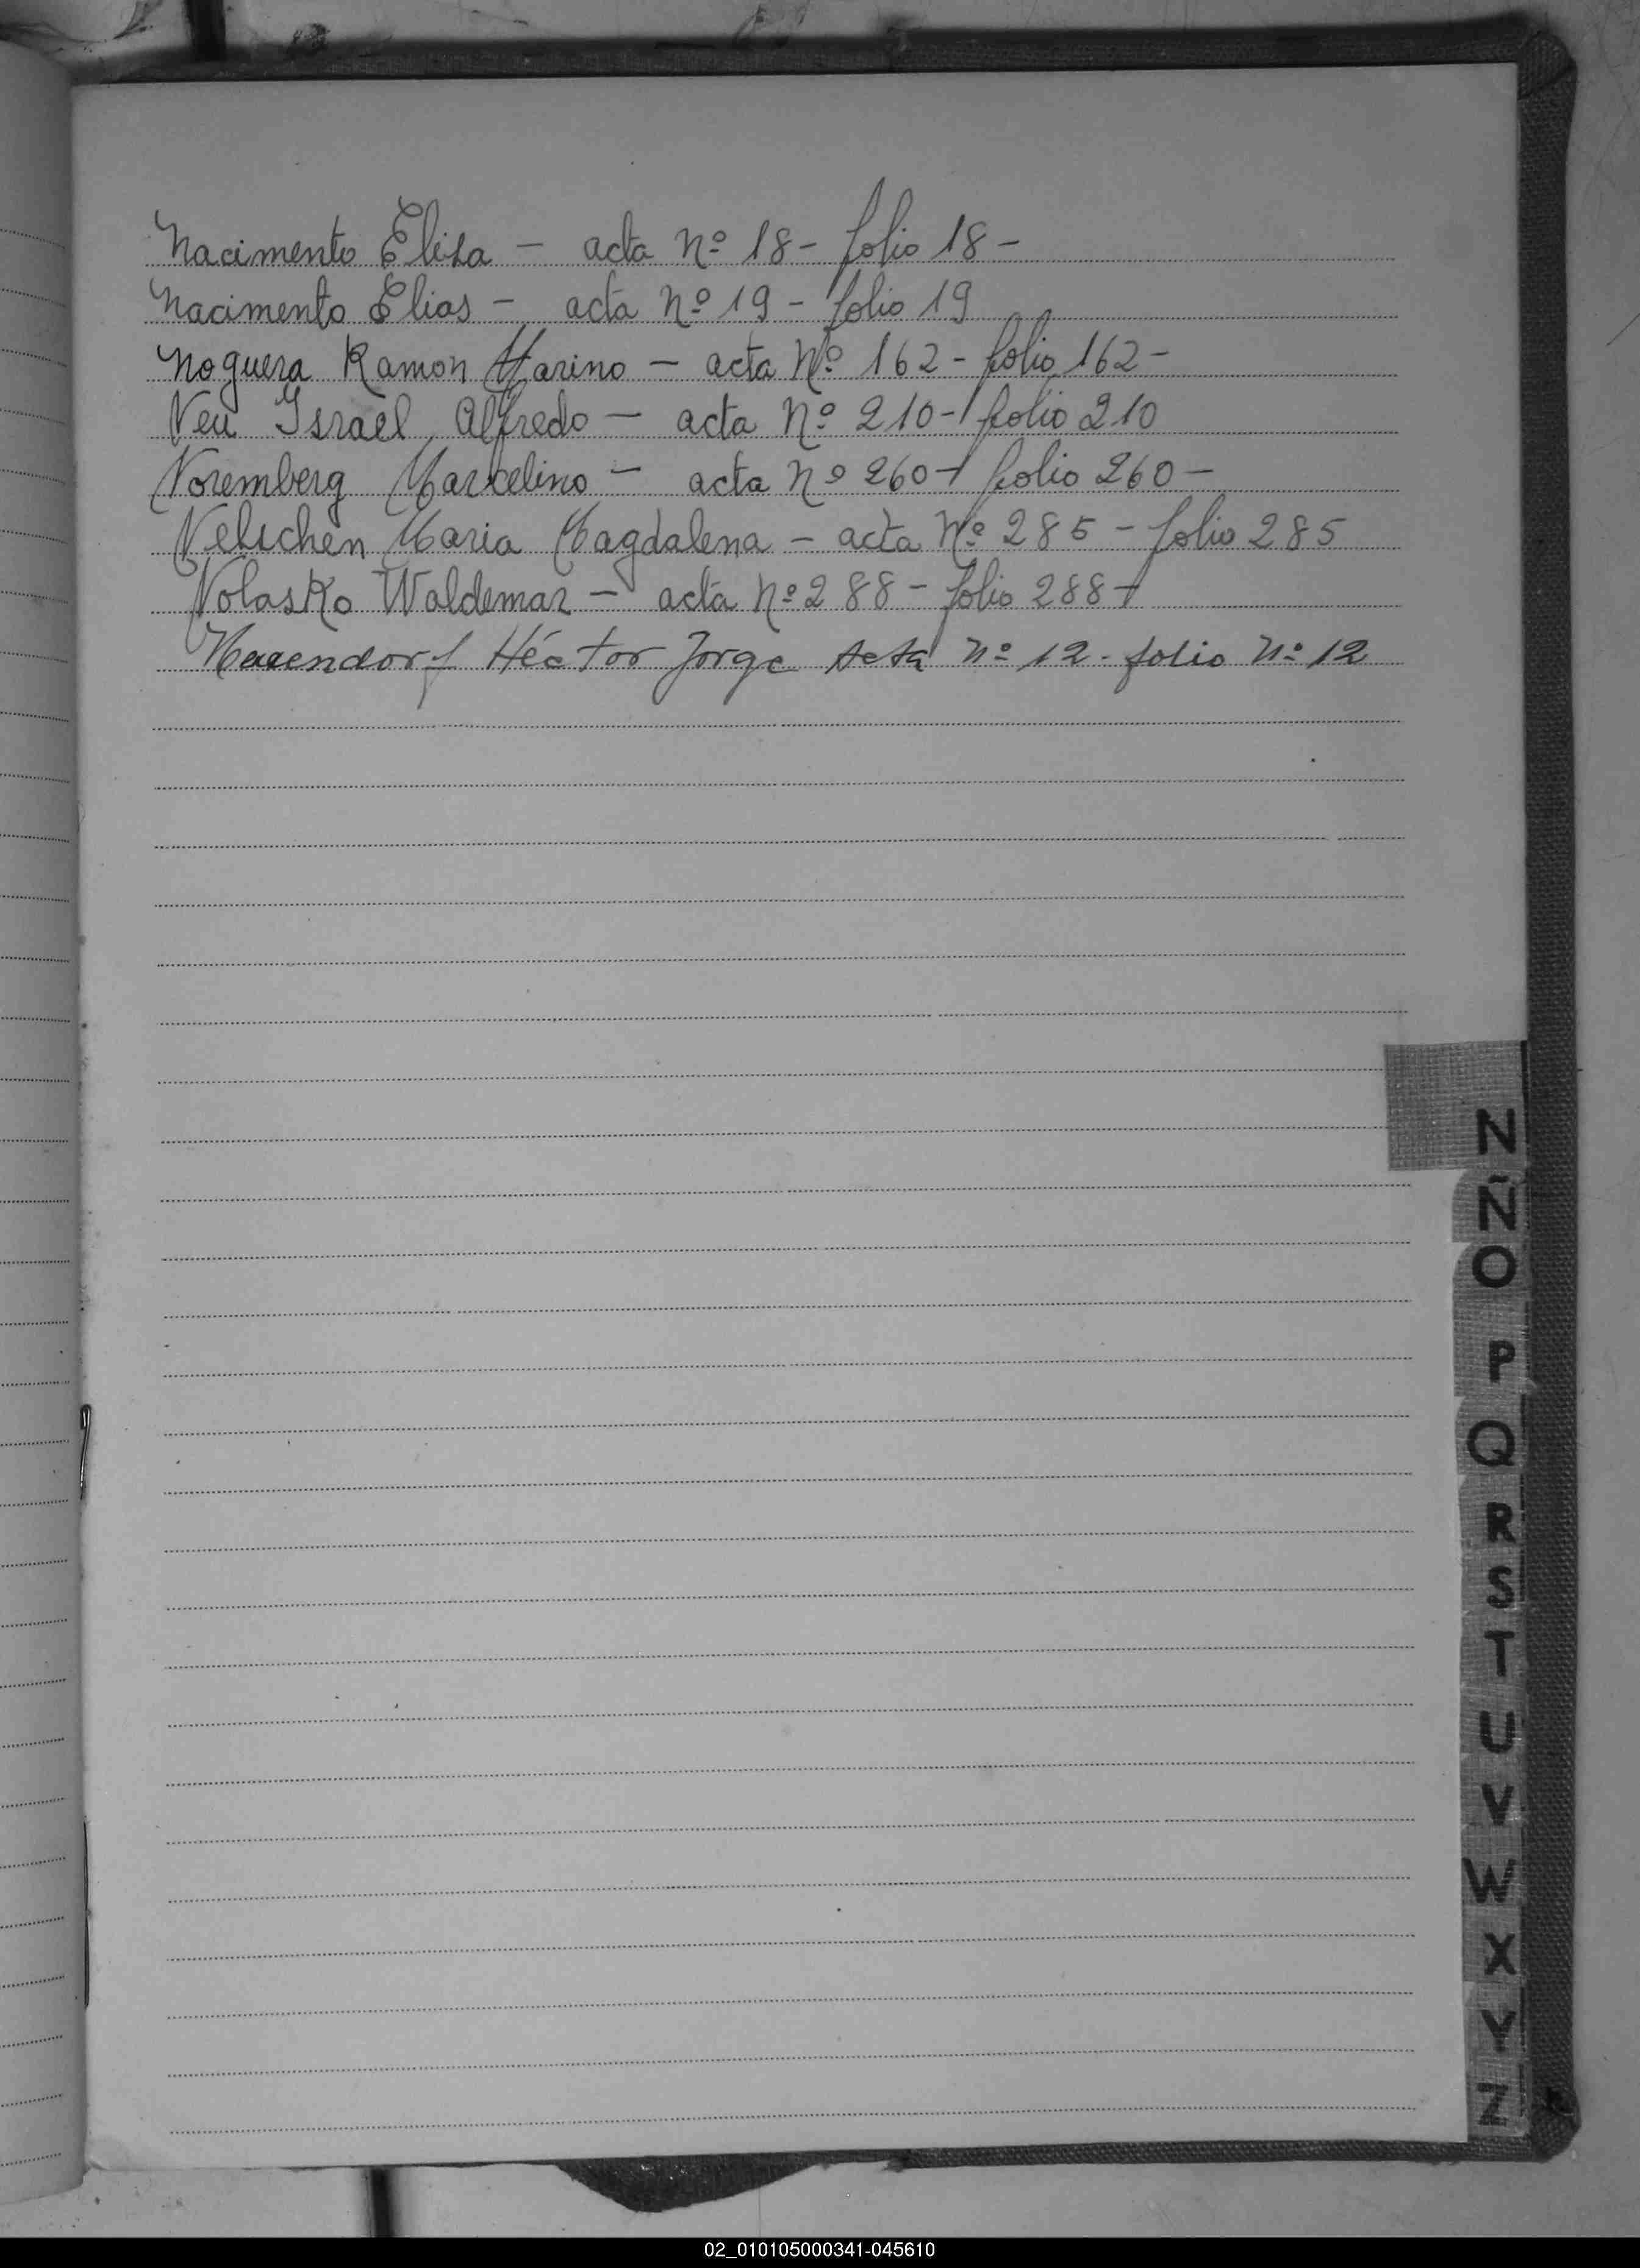 Nacimento Elisa - acta Nº 18 - folio 18 -
Nacimento Elias - acta Nº 19 - folio 19
Noguera Ramon Marino - acta Nº 162 - folio 162 -
Neu Israel Alfredo - acta Nº 210 - folio 210
Noremberg Marcelino - acta Nº 260 - folio 260 -
Maria Magdalena - acta Nº 285 - folio 285
Nolasko Waldemar - acta Nº 288 - folio 288 -
Héctor Jorge Acta Nº 12 - folio Nº 12
N
Ñ
O
P
Q
R
S
T
U
V
W
X
Y
Z
02_010105000341-045610